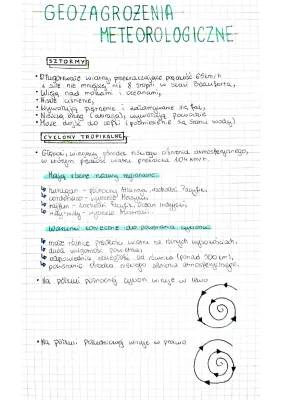 GEOZAGROŻENIA
METEOROLOGICZNE
SZTORMY
• Długotrwałe wichry, przekraczające prędkość 65km/h
a siłę nie mniejszą niż 8 stopni w skali Beauforta,
• Wieją nad morzami i oceanami,
• Niskie ciśnienie,
• Wywołują piętrzenie i załamywanie się fal,
• Niszczą brzeg (abrazja), wywołują powodzie
• Może dojść do cofki (podniesienie się stanu wody)
CYKLONY TROPIKALNE
• Głęboki, wirujący ośrodek niskiego ciśnienia atmosferycznego,
w którym prędkość wiatru przekracza 104 km/h.
Mają różne nazwy regionalne:
huragan - północny Atlantyk, wschodni Pacyfik,
- wybrzeże Meksyku,
tajfun - zachodni Pacyfik, Ocean Indyjski,
willy-willy - wybrzeże Australii.
Warunki konieczne do powstania cyklonu:
małe różnice prędkości wiatru na różnych wysokościach,
duża wilgotność powietrza,
odpowiednia odległość od równika (ponad 500 km),
powstanie ośrodka niskiego ciśnienia atmosferycznego.
• Na półkuli północnej cyklon wiruje w lewo
• Na półkuli południowej wiruje w prawo